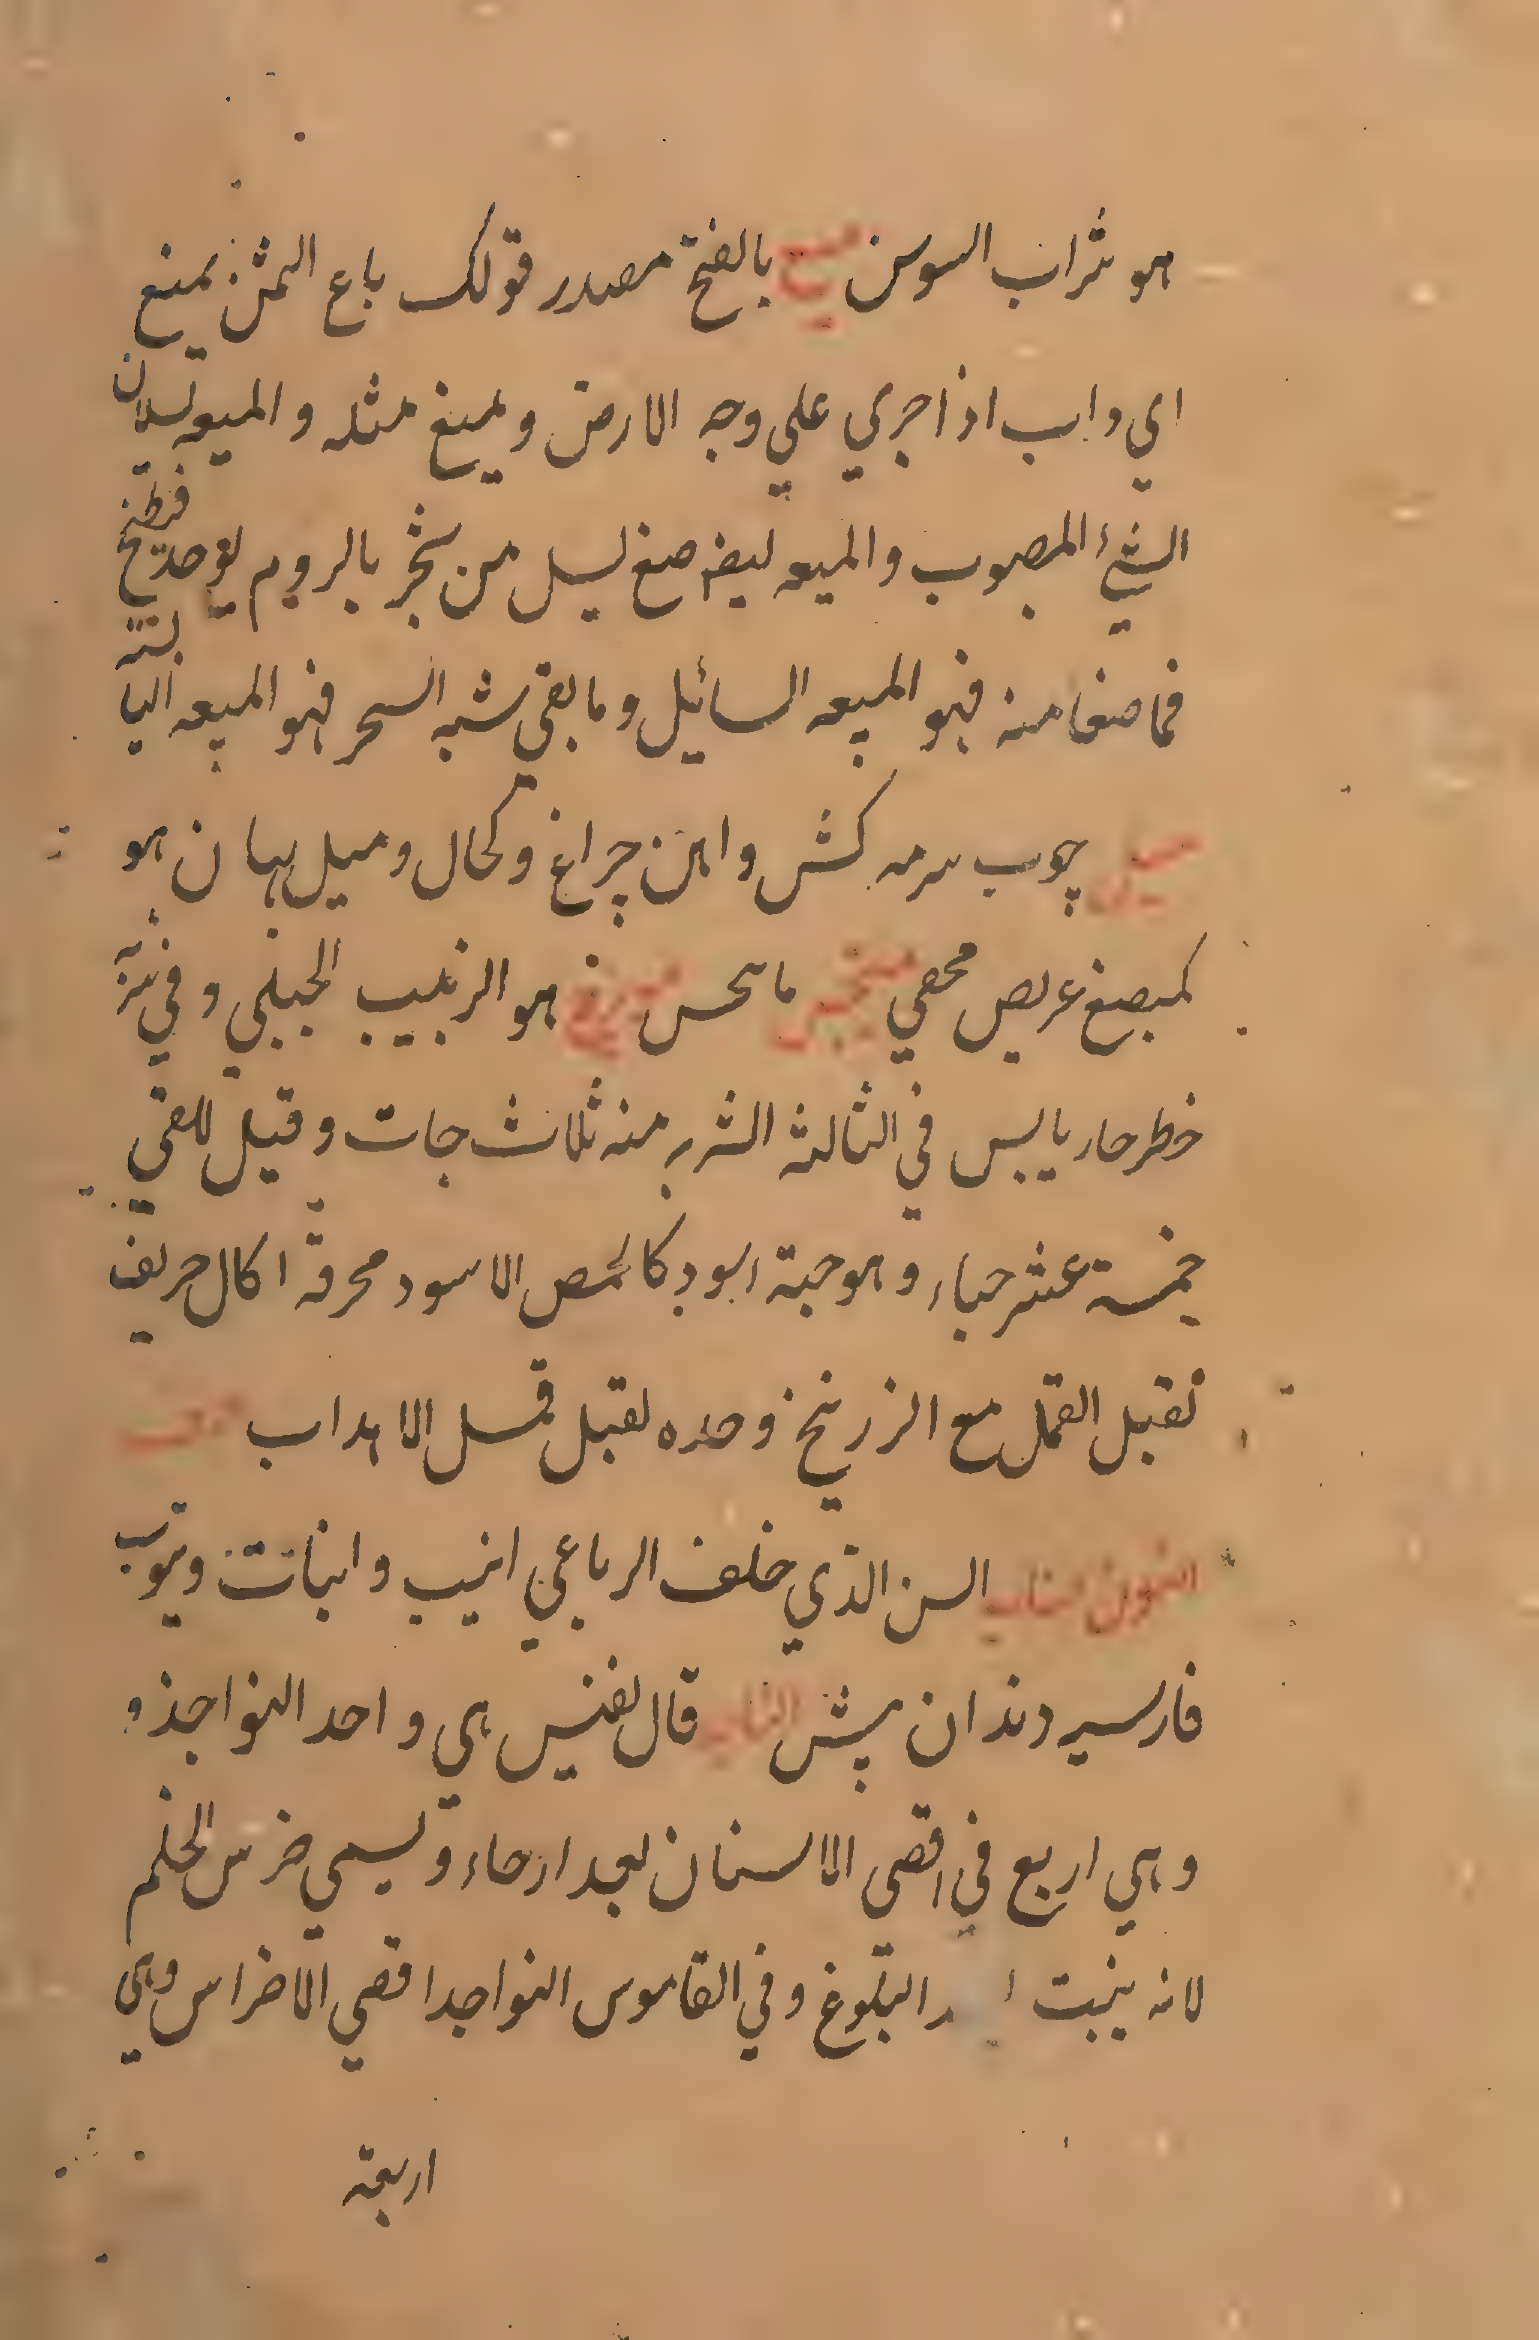 هو شراب السوسن ميع بالفتح مصدر قولك باع الثمن يمنع
اي داب اذا جري علي وجه الارض ويميع مثله والميعه تسيلان
الشيئ المصبوب والميعه ليضه صمغ ليسل من شجر بالروم يوخذ فيطبخ
فما صفا منه فهو الميعه السائيل وما بقي شبه السحر فهو الميعه اليابسته
ميل چوب سرمه كش واهن چراغ وكحال وميل بهان هو
كمبصغ عريص محفي منخس ماسحس ميوزج هو الزبيب الجبلي وفي شربه
خطر حار يابس في الثالثه الشربه منه ثلاث حبات وقيل للقي
خمسة عشر حباء وهو حبة اسود كالحمص الاسود محرقة اكال حريف
تقبل القمل مع الزرنيخ وحده لقبل قمل الاهداب
النون ناب السن الذي خلف الرباعي انيب وانيات ونيوب
فارسيه دندان پيش الناب قال لفنيس هي واحد النواجذ و
وهي اربع في اقصى الاسنان بعد ارحاء وتسمي ضرس الحلم
لانه ينبت البلوغ وفي القاموس النواجد اقصي الاضراس وهي
اربعة